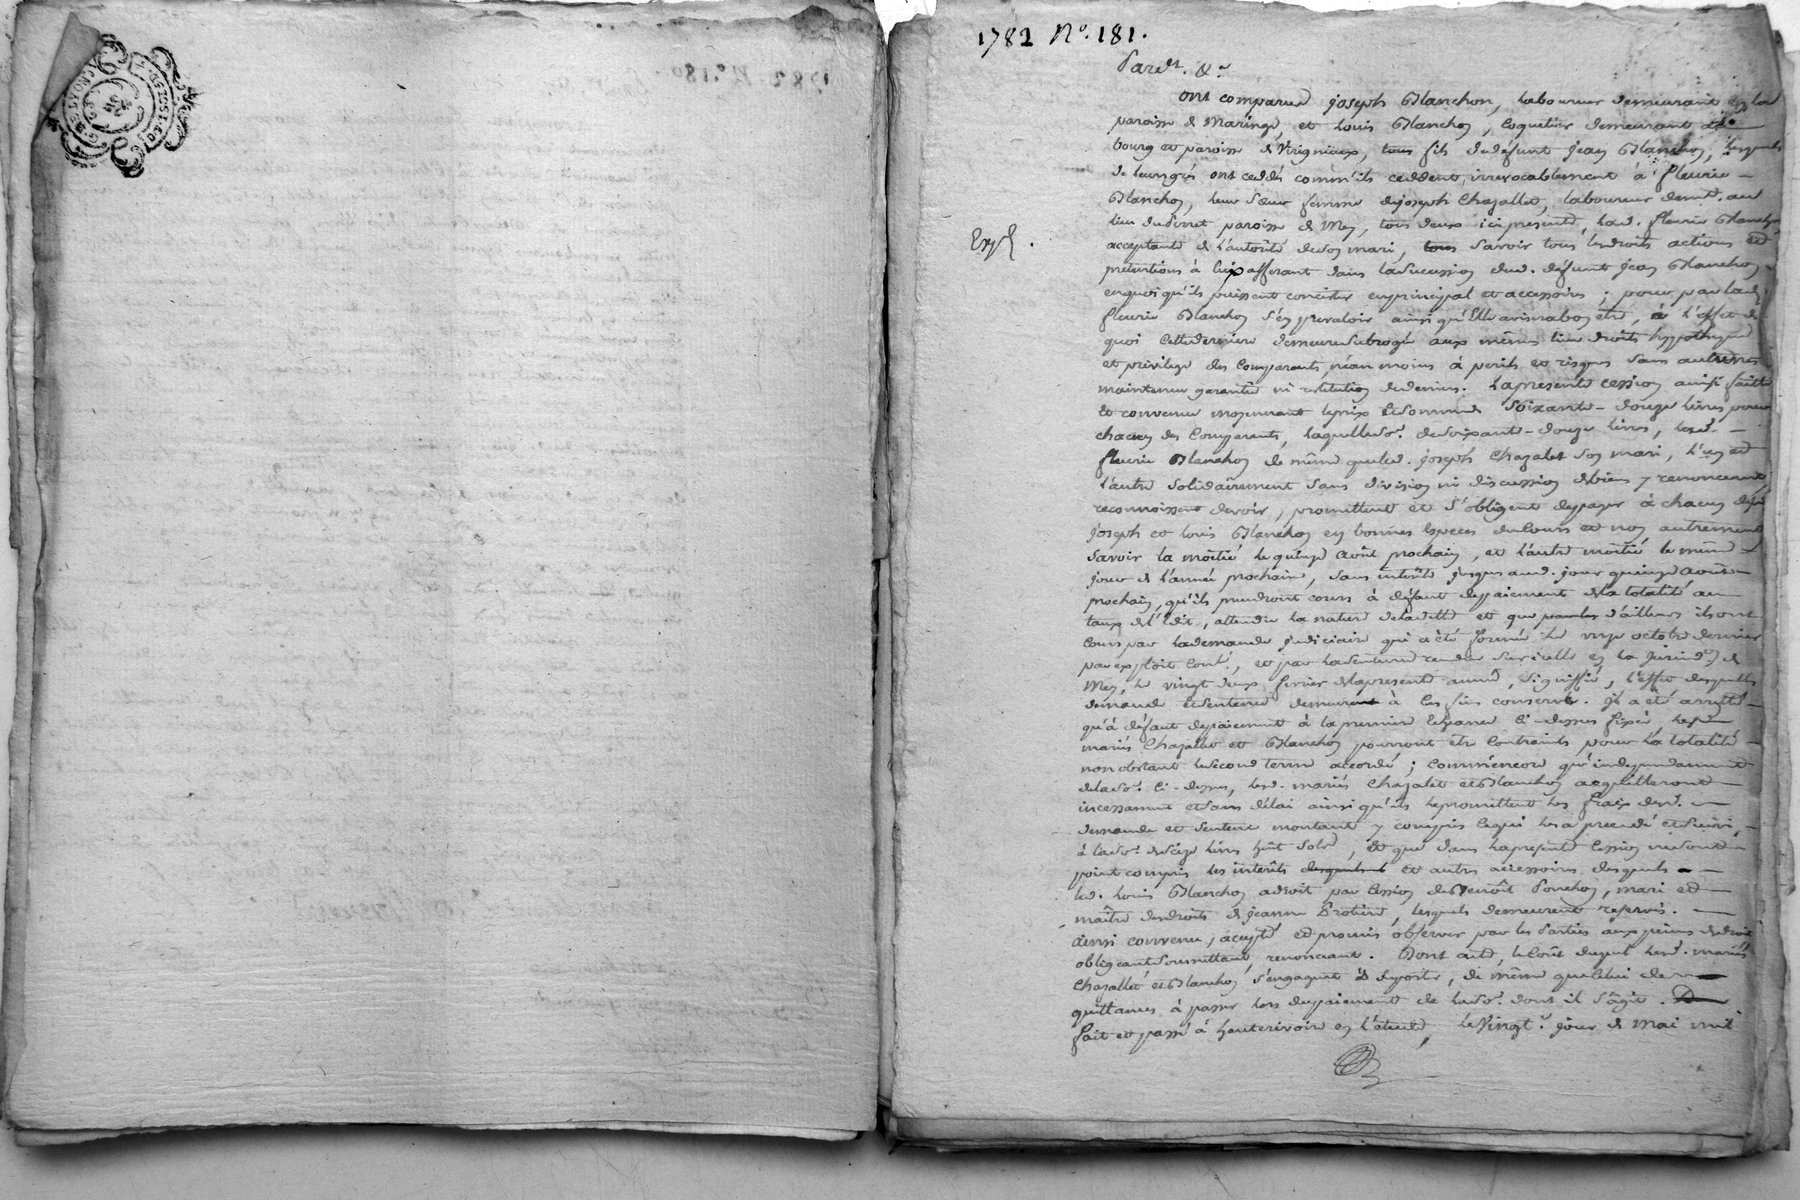 1782 N.o 181.
Pard.t &.a
ont comparu joseph Blanchon, laboureur demeurant en la
paroisse de Maringe, et Louis Blanchon, coquetier demeurant au
bourg et paroisse de Virignieux, tous fils de défunt jean Blanchon, lesquels
de leur gré ont ceddé comm'ils ceddent irrevocablement à fleurie
Blanchon, leur sœur femme de joseph Chazallet, laboureur demt. au
lieu du paroisse de Mey, tous deux ici presents, lad. fleurie Blanchon
Exp.
acceptante de l'autorité de son mari, tous savoir tous les droits actions et
pretentions à eux afferant dans la succession dud. défunt jean Blanchon
en quoi qu'ils puissent concister en principal et accessoires ; pour par lad.
fleurie Blanchon s'en prevaloir ainsi qu'elle avisera bon etre, à l'effet de
quoi cette derniere demeure subrogée aux mêmes lieu droits hypotheque
et privilege des comparants, néanmoins à perils et risques sans autrement
maintenue garantie ni restitution de deniers. La presente cession ainsi faitte
et convenue moyennant le prix et somme de soixante-douze livres pour
chacun des comparants, laquelle so.e de soixante-douze livres, lad.
fleurie Blanchon de même que led. joseph Chazalet son mari, l'un et
l'autre solidairement sans division ni discussion de biens y renonceant,
reconnoissent devoir, promettent et s'obligent de payer à chacun desd.
joseph et Louis Blanchon en bonnes especes du cours et non autrement
savoir la moitié le quinze août prochain, et l'autre moitié le même
jour de l'année prochaine, sans intérêts jusques aud. jour quinze août
prochain, qu'ils prendront cours à défaut de paiement de la totalité au
taux de l'édit, attendu la nature de la dette et que d'ailleurs ils ont
cours par la demande judiciaire qui a été formée le onze octobre dernier
par exploit cont.é, et par la sentence rendue sur icelle en la jurisd.on de
Mey, le vingt deux fevrier de la presente année, signiffiée, l'effet desquelles
demande et sentence demeurent à ces fins conservé. Il a été arretté
qu'à défaut de paiement à la premiere echeance ci-dessus fixée, lesd.
mariés Chazallet et Blanchon pourront etre contraints pour la totalité
nonobstant le second terme accordé ; comm'encore qu'independamment
de la so.e ci-dessus, lesd. mariés Chazalet et Blanchon acquitteront
incessamment et sans délai ainsi qu'ils le promettent les fraix desd.
demande et sentence montant y compris ce qui les a precedé et suivi,
à la so.e de seize livres huit sols, et que dans la presente cession ne sont
point compris les intérêts et autres accessoires desquels
led. Louis Blanchon a droit par cession de Benoît Ponchon, mari et
maître des droits de jeanne , lesquels demeurent reservés.
ainsi convenu, accepté et promis observer par les parties aux peines de droit
obligeant soumettant, renonceant. Dont acte, le coût duquel lesd. mariés
Chazallet et Blanchon s'engagent de suporter, de même que celui de
quittances à passer lors du paiement de lad. so.e dont il s'agit.
fait et passé à hauterivoire en l'étude, le vingt.e jour de mai mil